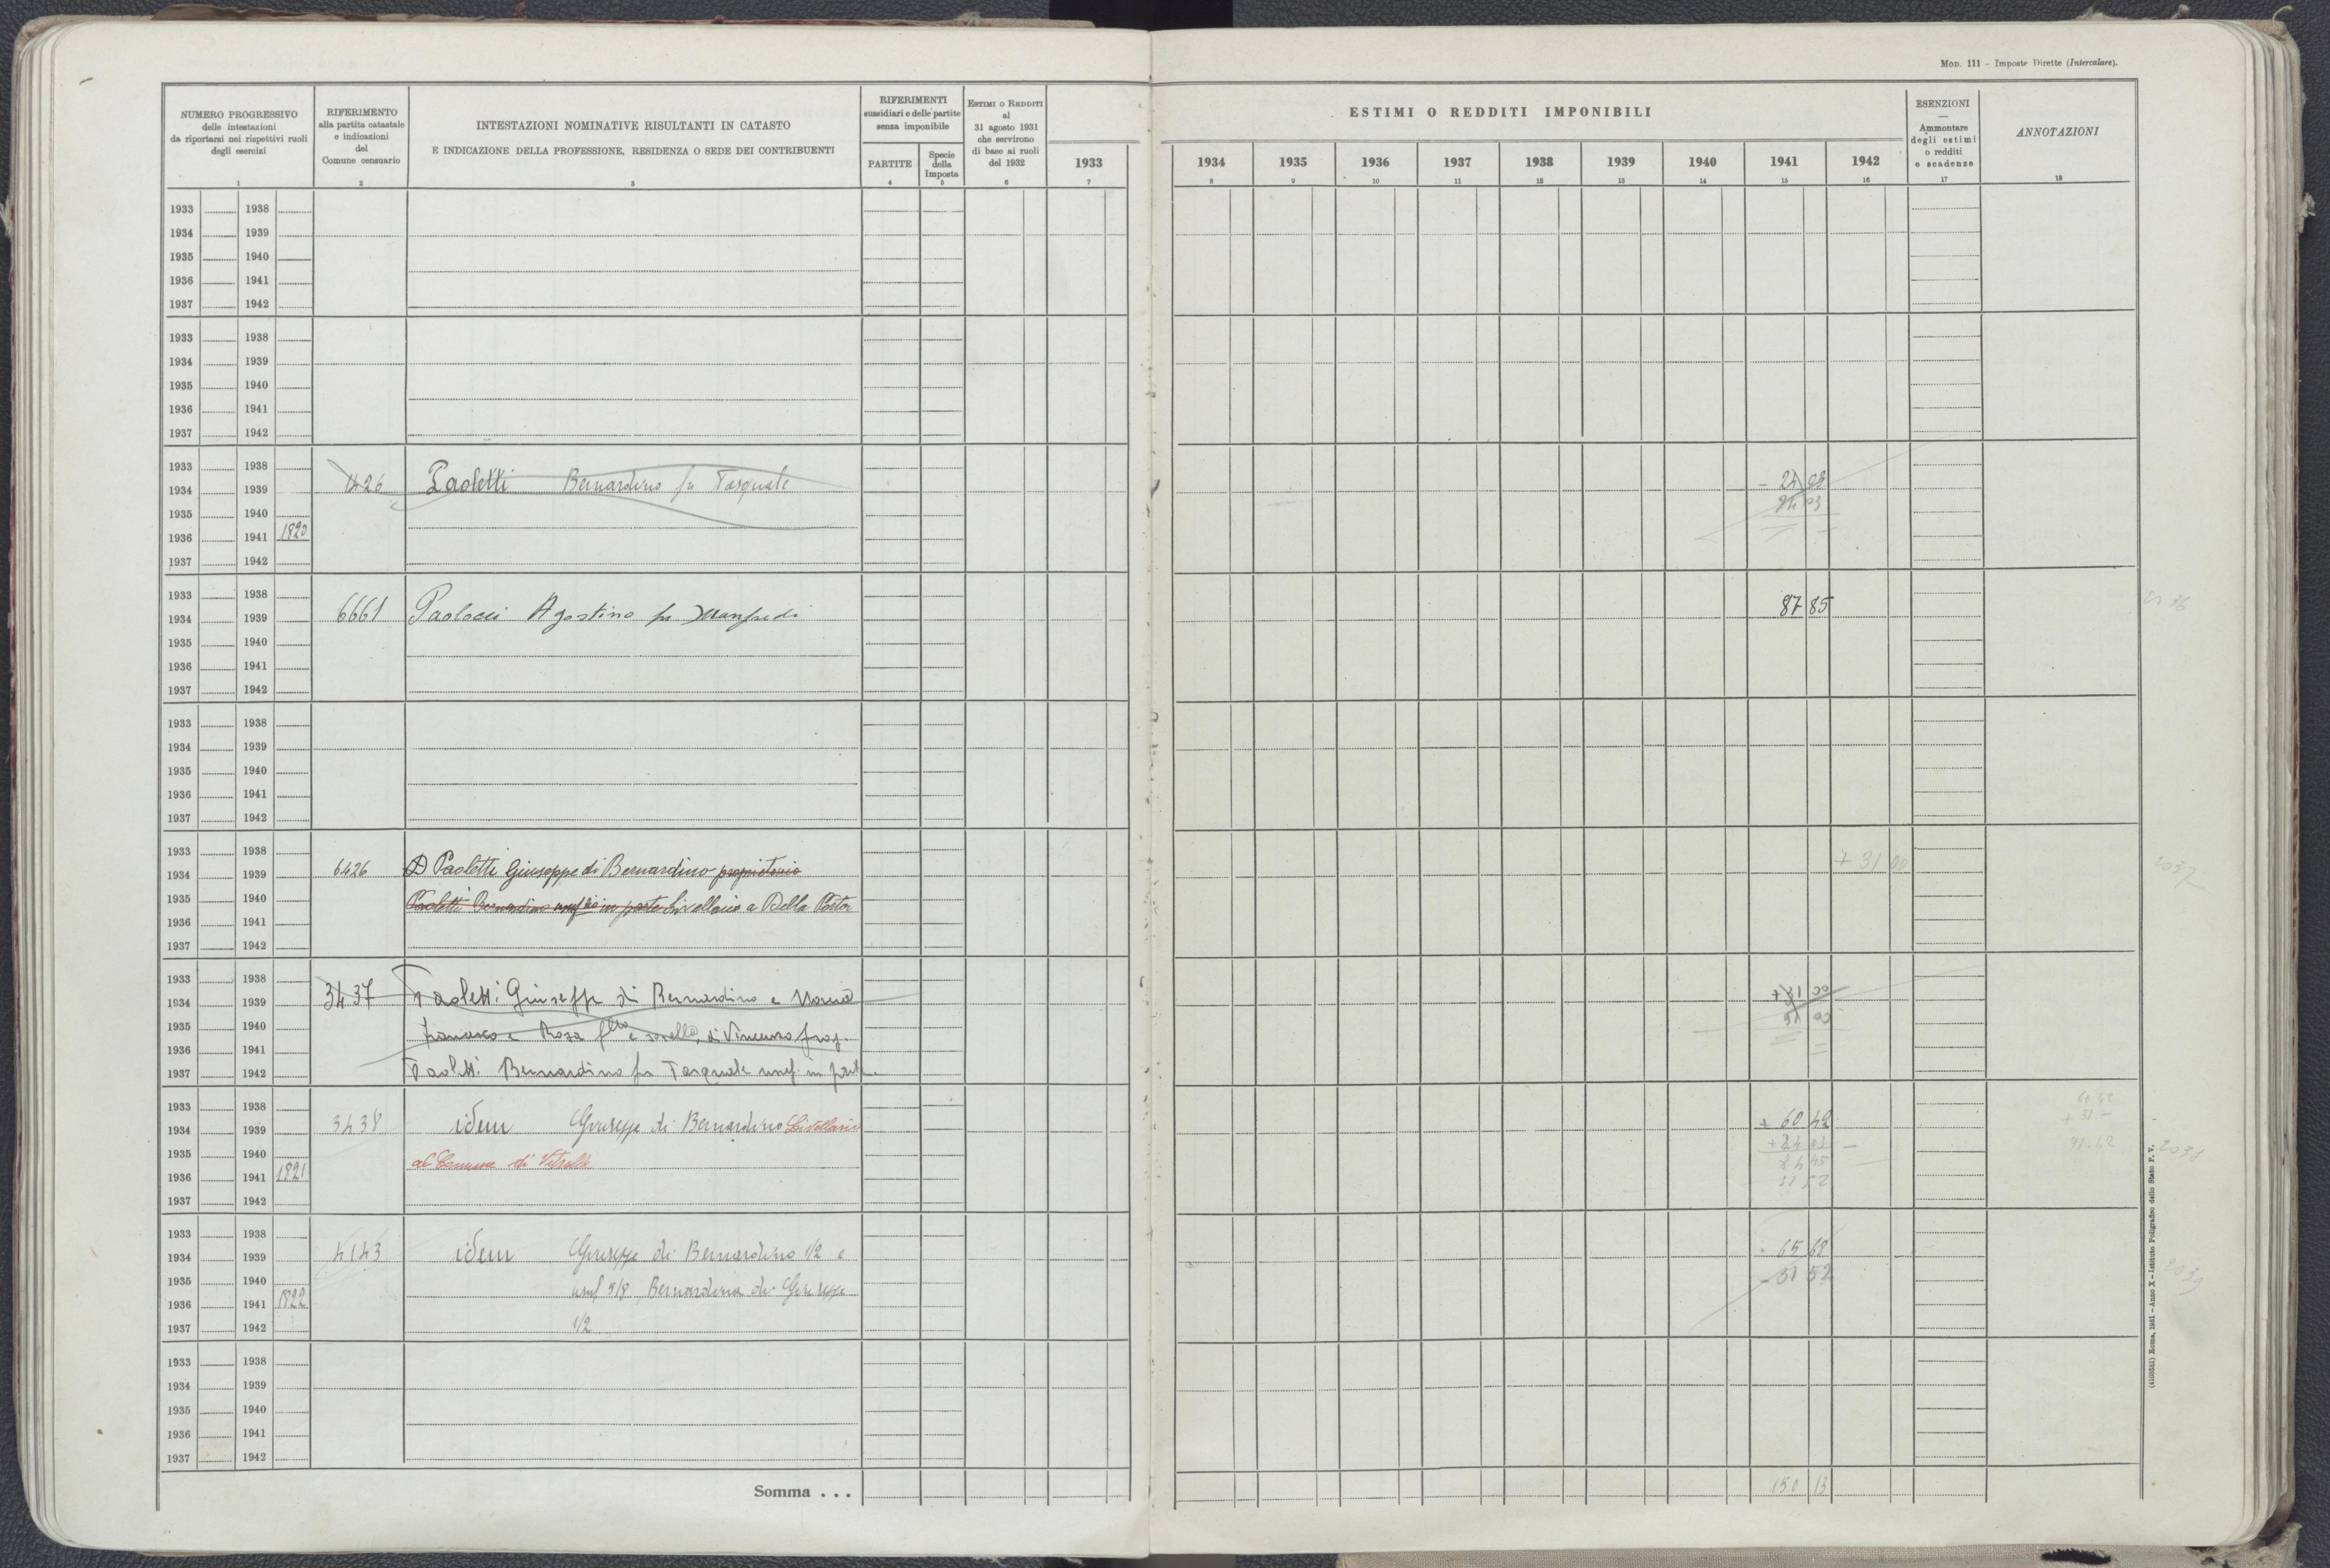 Mod. 111 – Imposte Dirette (Intercalare).
NUMERO PROGRESSIVO
delle intestazioni
da riportarsi nei rispettivi ruoli
degli esercizi
1
RIFERIMENTO
alla partita catastale
e indicazioni
del
Comune censuario
2
INTESTAZIONI NOMINATIVE RISULTANTI IN CATASTO
E INDICAZIONE DELLA PROFESSIONE, RESIDENZA O SEDE DEI CONTRIBUENTI
3
RIFERIMENTI
sussidiari e delle partite
senza imponibile
PARTITE
4
Specie
della
Imposta
5
ESTIMI O REDDITI
al
31 agosto 1931
che servirono
di base ai ruoli
del 1932
6
1933
7
ESTIMI O REDDITI IMPONIBILI
1934 1935 1936 1937 1938 1939 1940 1941 1942
8 9 10 11 12 13 14 15 16
ESENZIONI
—
Ammontare
degli estimi
o redditi
e scadenze
17
ANNOTAZIONI
18
1933 1938
1934 1939
1935 1940
1936 1941
1937 1942
1933 1938
1934 1939
1935 1940
1936 1941
1937 1942
1933 1938
1934 1939 Paoletti Bernardino fu Pasquale - 24 03
1935 1940 24 03
1936 1941 1820
1937 1942
1933 1938
1934 1939 6661 Paolocci Agostino fu Manfredi 87 85
1935 1940
1936 1941
1937 1942
1933 1938
1934 1939
1935 1940
1936 1941
1937 1942
1933 1938
1934 1939 6426 Paoletti Giuseppe di Bernardino proprietario + 31 00 2037
1935 1940 Paoletti Bernardino in parte Livellario a Della Porta
1936 1941
1937 1942
1933 1938
1934 1939 3437 Paoletti Giuseppe di Bernardino e Maria + 31 00
1935 1940 Francesco e Rosa e sorella di Vincenzo prop. 31 00
1936 1941
1937 1942 Paoletti Bernardino fu Pasquale usuf. in parte.
1933 1938 60 42
1934 1939 3438 idem Giuseppe di Bernardino Livellario + 60 42 + 31.–
1935 1940 al Comune di Vetralla + 24 03 91.42 2038
1936 1941 1821 84 45
31 52
1937 1942
1933 1938
1934 1939 4143 idem Giuseppe di Bernardino 1/2 e 65 68
1935 1940 usuf 3/8 Bernardina di Giuseppe 51 52 2039
1936 1941 1822
1937 1942 1/2
1933 1938
1934 1939
1935 1940
1936 1941
1937 1942
Somma . . . 150 13
(4103581) Roma, 1931 – Anno X – Istituto Poligrafico dello Stato P. V.